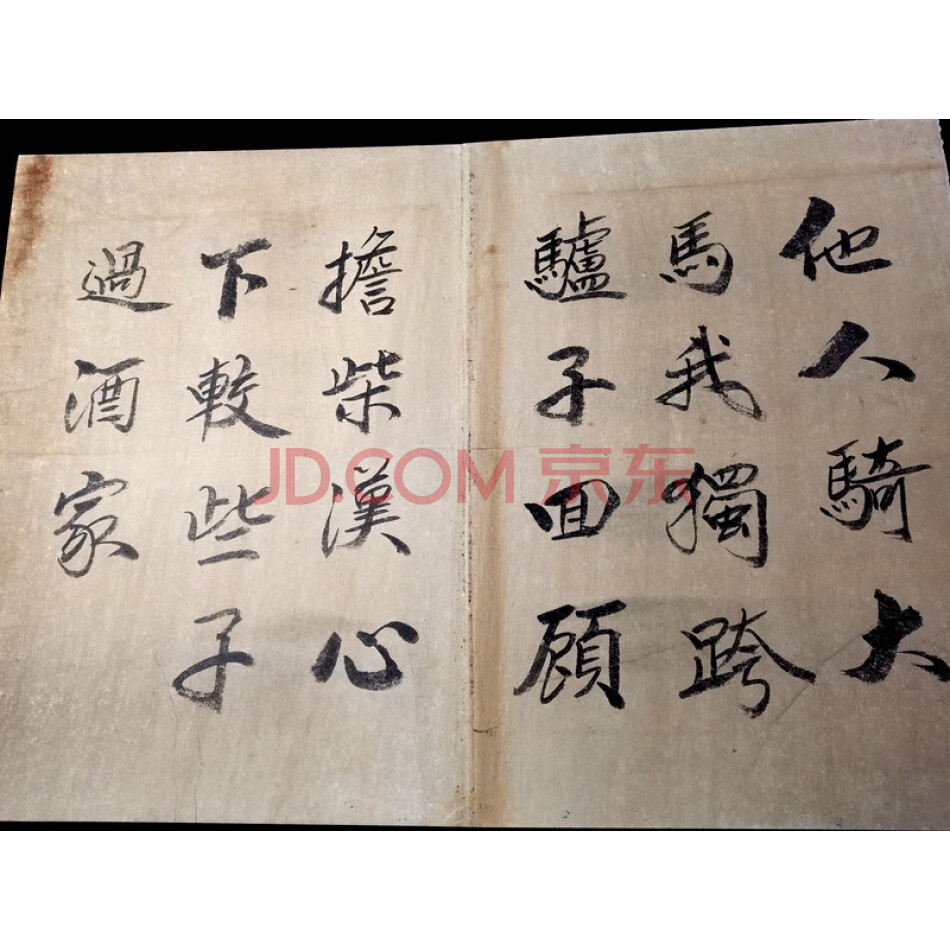 他人騎大
馬我獨跨
驢子回顧
擔柴漢心
下較些子
過酒家
JD.COM 京东